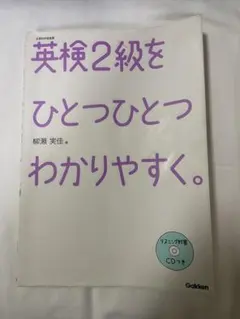 英検2級を
ひとつひとつ
わかりやすく。
リスニング対策
CDつき
Gakken